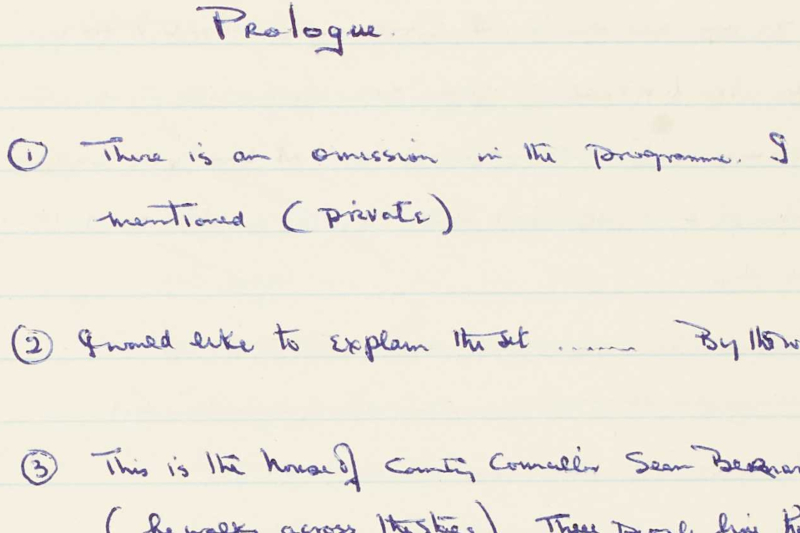 Prologue.
① There is an omission in the programme. I
mentioned (private)
② I would like to explain the set ....... By the
③ This is the house of County Councillor Sean
(he walks across the stage) These people live